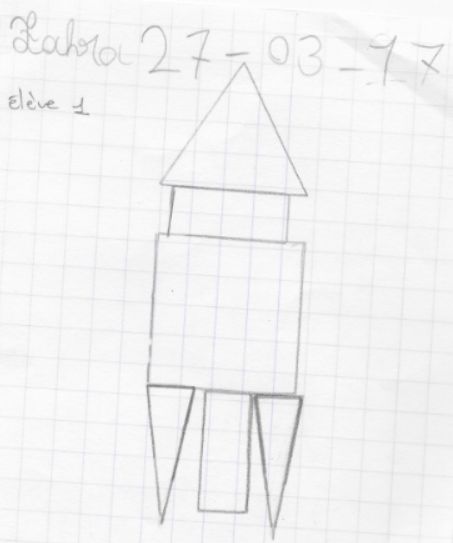 Zahra 27-03-17
élève 1